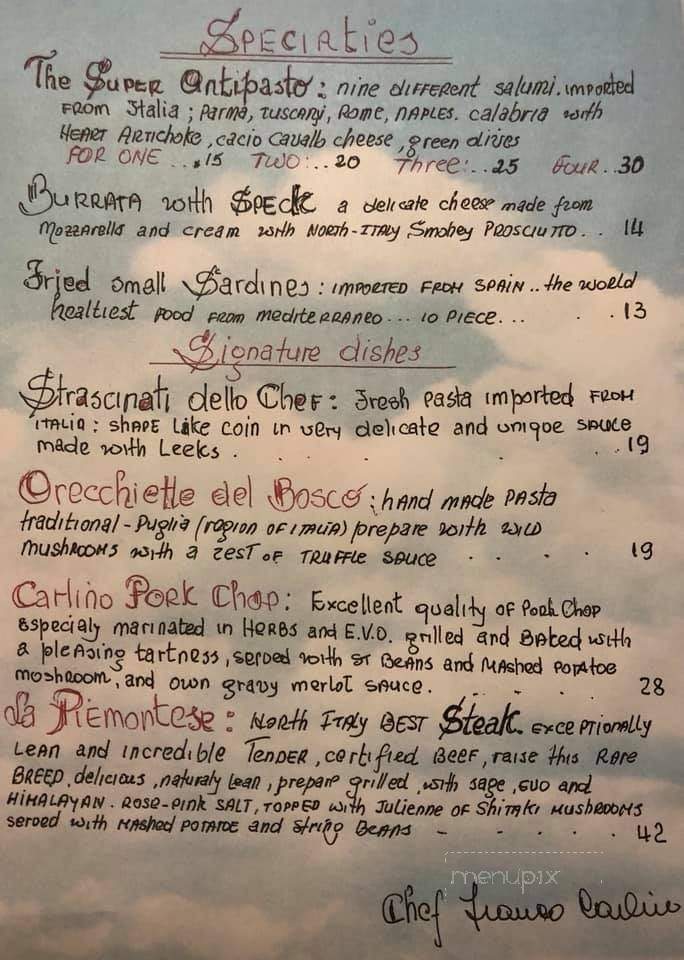 Specialties
The Super Antipasto: nine different salumi. imported
from Italia ; Parma, Tuscany, Rome, Naples. calabria with
Heart Artichoke, cacio Cavallo cheese, green olives
FOR ONE ...$15 TWO:..20 Three:..25 FOUR..30
Burrata with Speck a delicate cheese made from
Mozzarella and cream with North-Italy Smokey Prosciutto.. 14
Fried small Sardines: imported from Spain.. the world
healtiest food from mediterraneo... 10 piece... . .13
Signature dishes
Strascinati dello Chef: Fresh pasta imported from
Italia: shape like coin in very delicate and unique sauce
made with Leeks . . . . ..19
Orecchiette del Bosco: hand made pasta
traditional-Puglia (ragion of Italia) prepare with wild
mushrooms with a zest of truffle sauce . . . . 19
Carlino Pork Chop: Excellent quality of Pork Chop
especialy marinated in Herbs and E.V.O. grilled and Baked with
a pleasing tartness, served with st Beans and Mashed Potatoe
moshroom, and own gravy merlot sauce. . . . . 28
La Piemontese: North Italy Best Steak. exceptionally
lean and incredible Tender, certified Beef, raise this Rare
Breed, delicious, naturaly lean, prepare grilled, with sage, EUO and
Himalayan. Rose-pink salt, topped with Julienne of Shitaki mushrooms
served with Mashed Potatoe and string Beans - - . . . . 42
menupix
Chef Franco Carlino